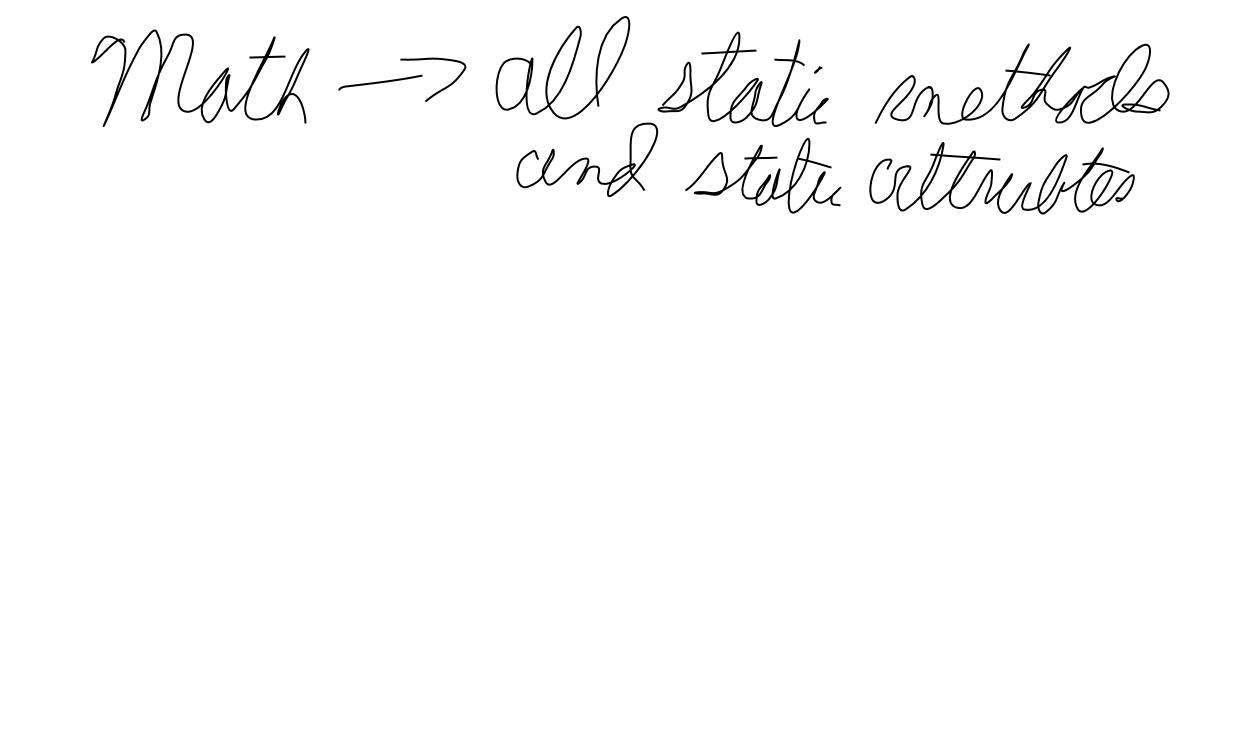 Math → all static methods
and static attributes